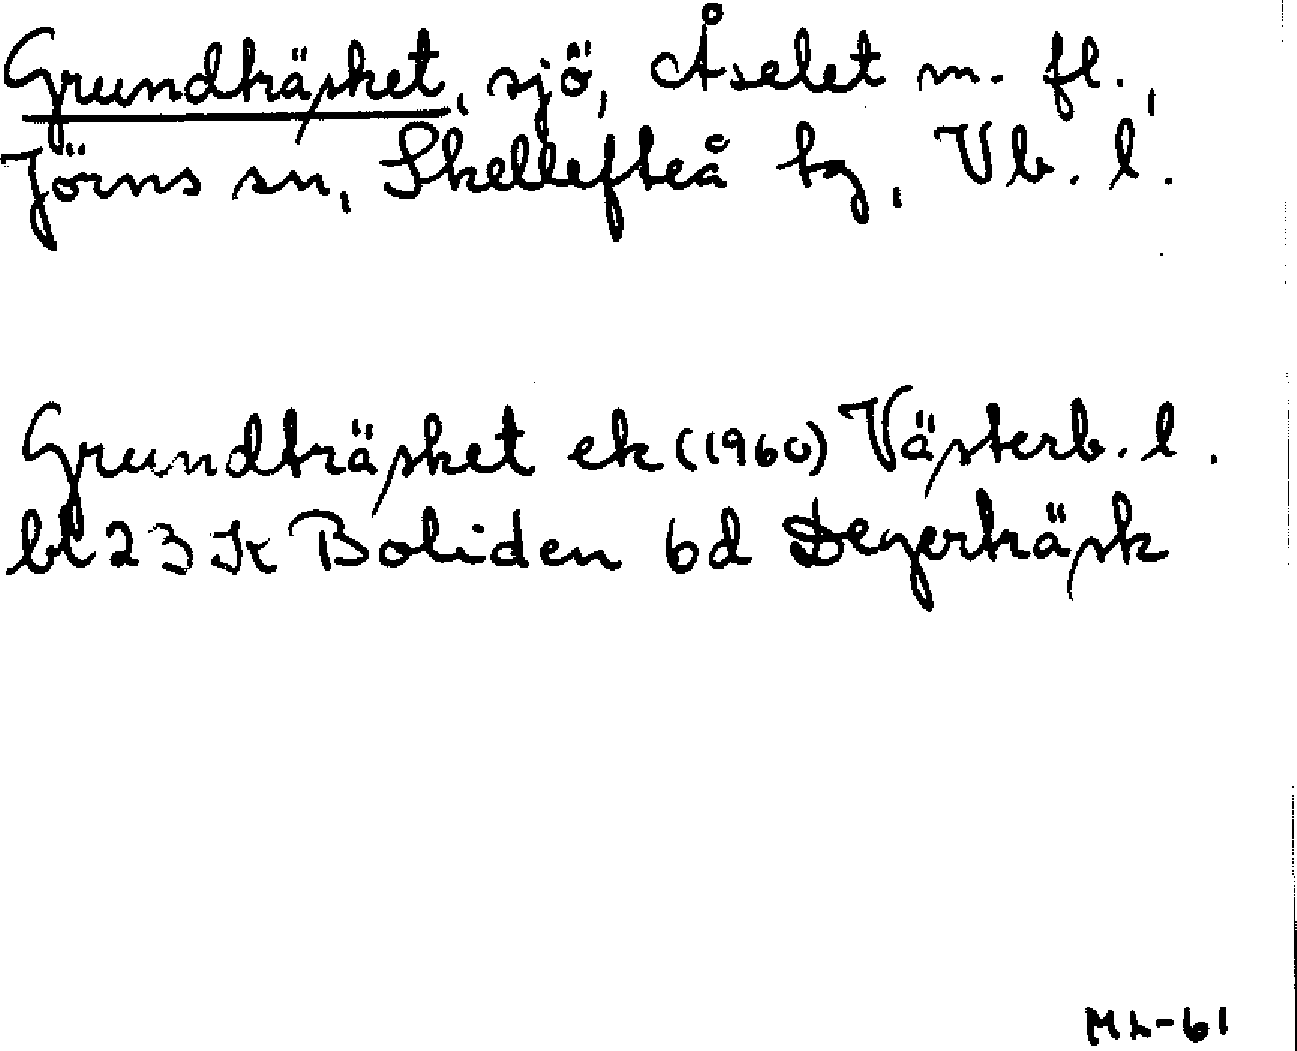 Grundträsket, sjö, Åselet m. fl.,
Jörns sn, Skellefteå tg, Vb. l.
Grundträsket ek (1960) Västerb. l.
bl 23 K Boliden 6d Degerträsk
ML-61